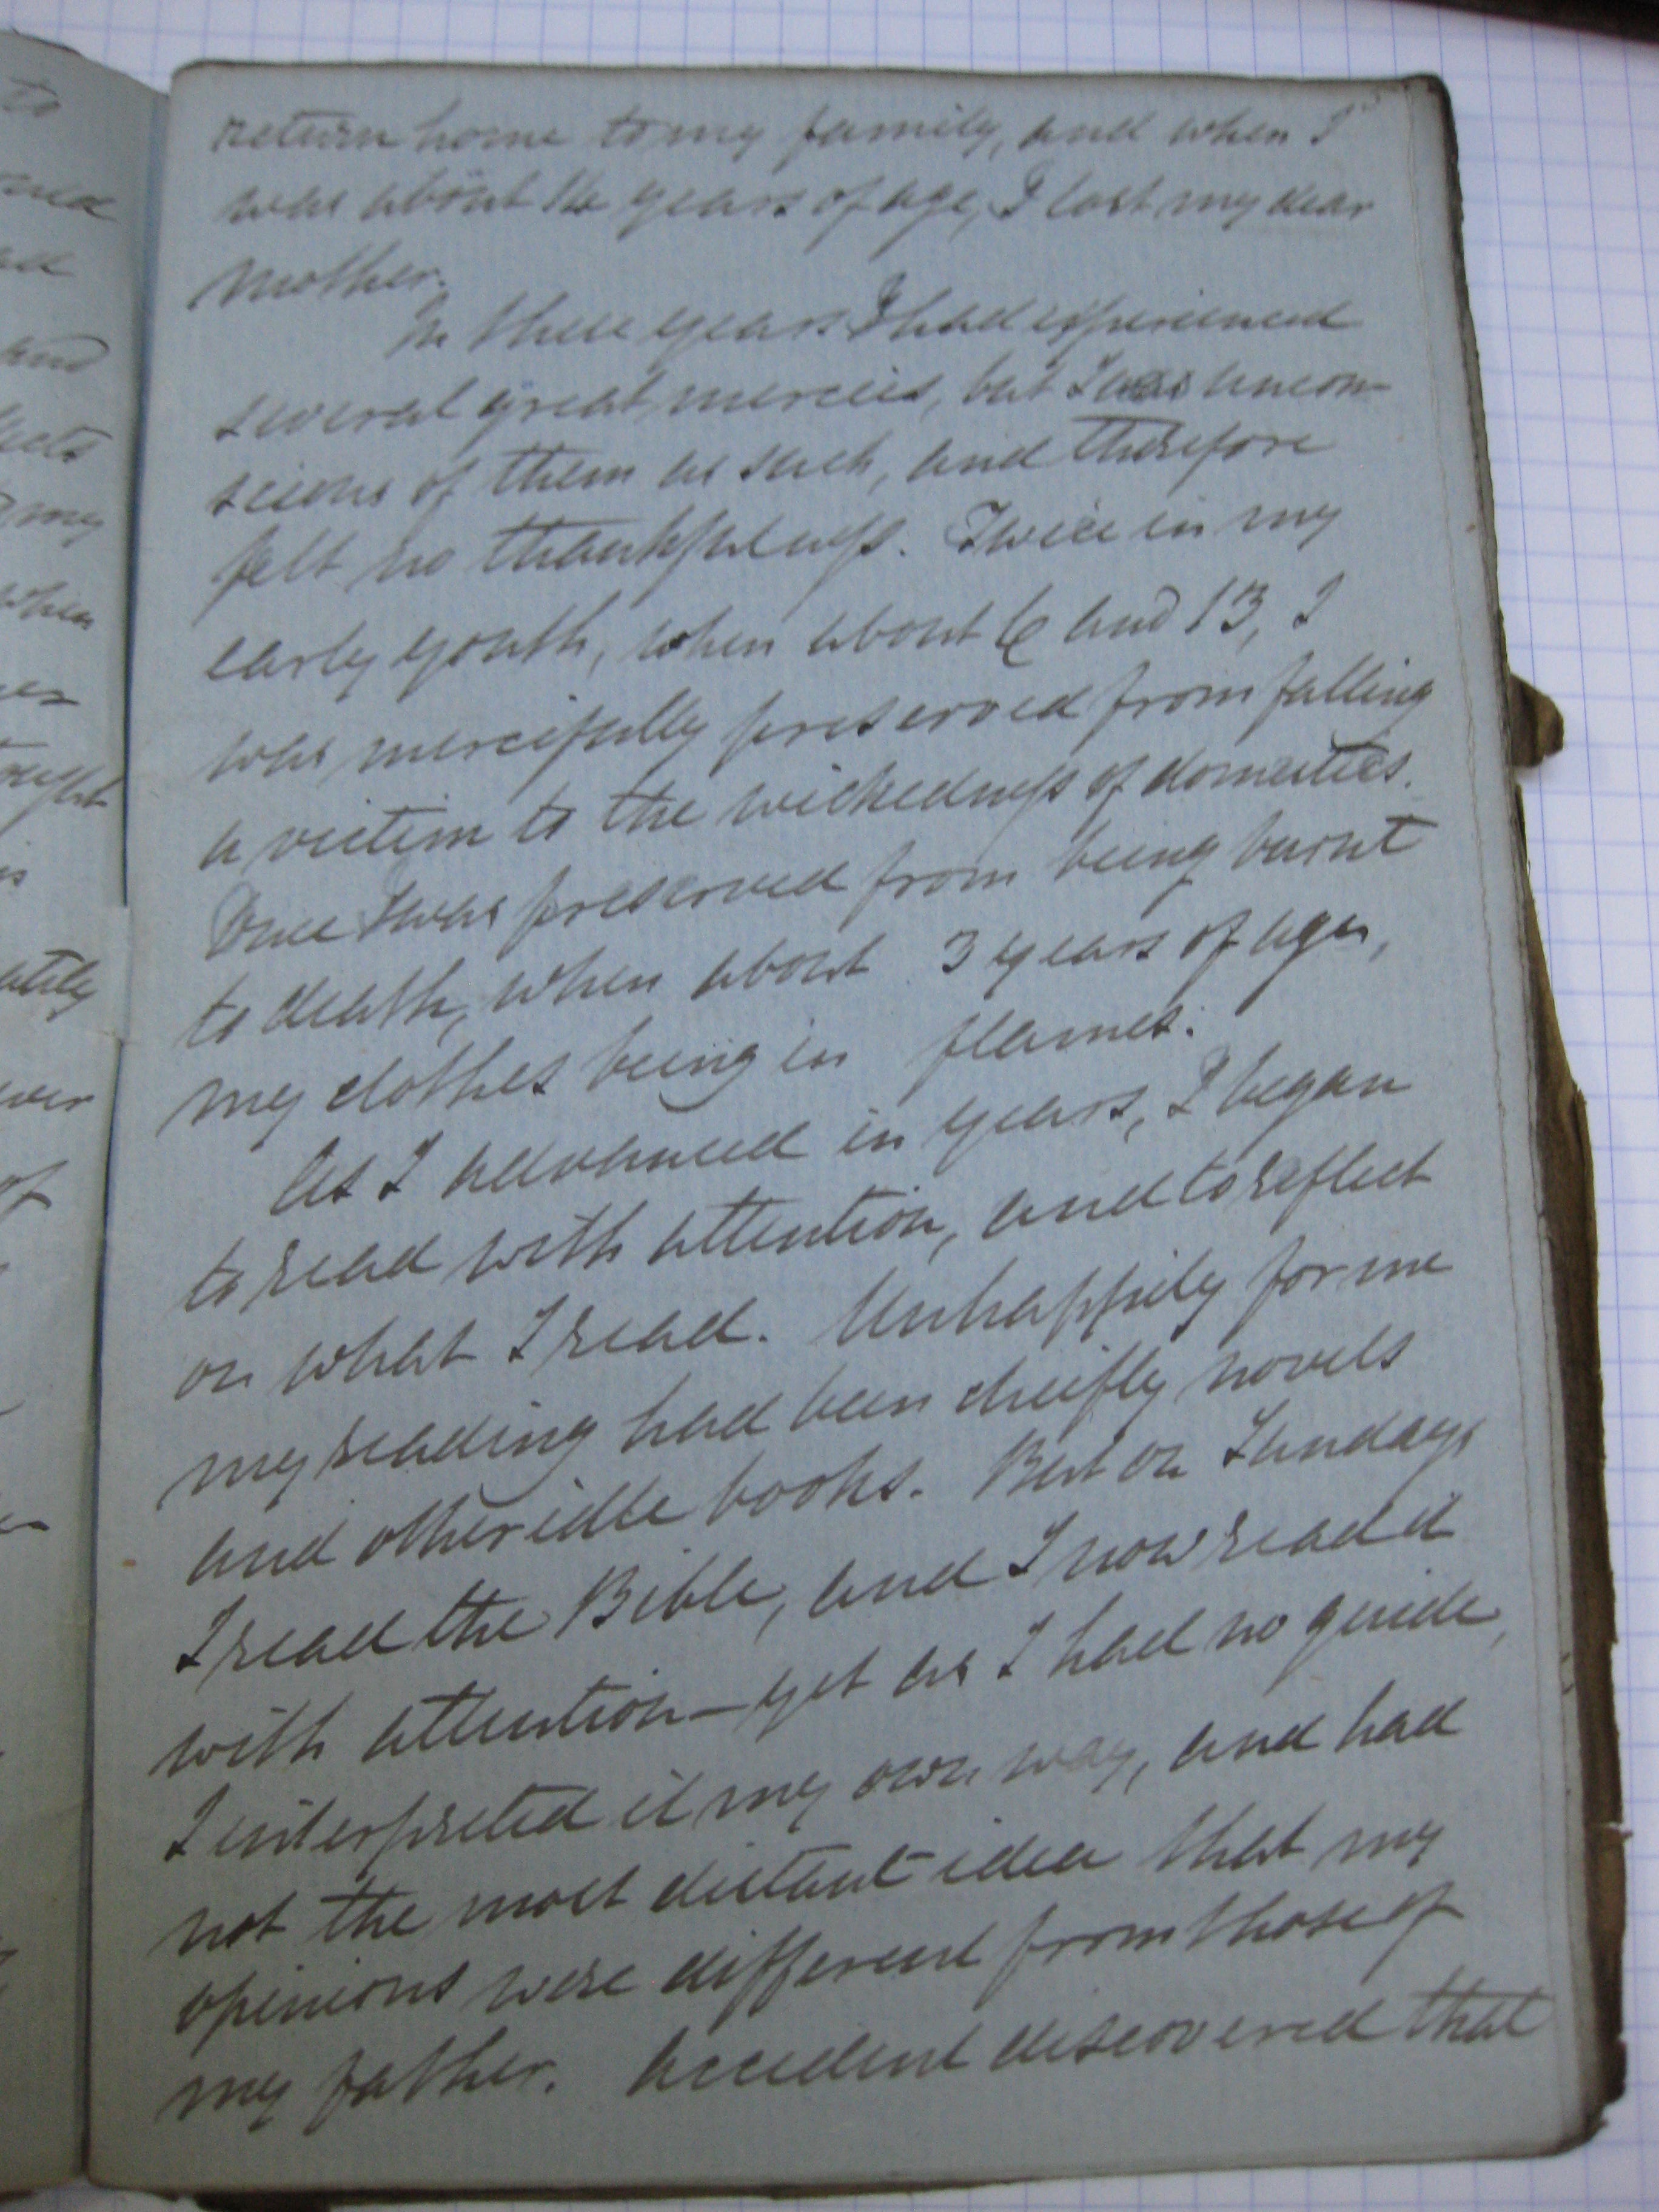 return home to my family, and when I
was about 16 years of age, I lost my dear
Mother.
In these years I had experienced
several great mercies, but I was uncon-
scious of them as such, and therefore
felt no thankfulness. Twice in my
early youth, when about 6 and 13, I
was mercifully preserved from falling
a victim to the wickedness of domestics.
Once I was preserved from being burnt
to death, when about 3 years of age,
my clothes being in flames.
As I advanced in years, I began
to read with attention, and to reflect
on what I read. Unhappily for me
my reading had been cheifly novels
and other idle books. But on Sundays
I read the Bible, and I now read it
with attention — yet as I had no guide,
I interpreted it my own way, and had
not the most distant idea that my
opinions were different from those of
my father. Accident discovered that
to
and
my
when
ought
is
of